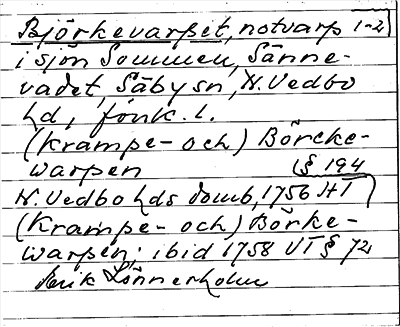 Björkevarpet, notvarp 1-2)
i sjön Sommen, Sänne-
vadet, Säby sn, N. Vedbo
hd, Jönk. l.
(Krampe- och) Börcke-
warpen (§ 194
N. Vedbo hds domb, 1756 HT)
(Krampe- och) Börke-
warpen; ibid 1758 VT § 72
Erik Lönnerholm